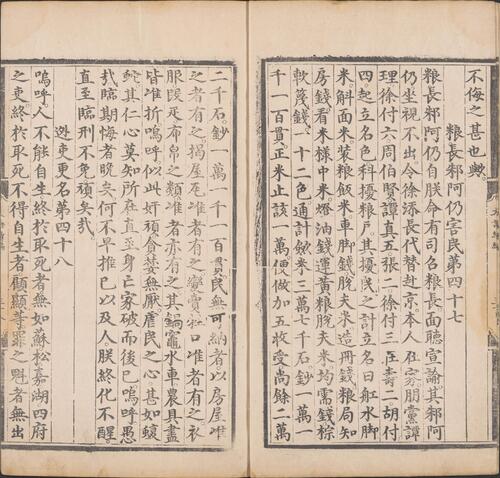 不侮之甚也歟
粮長邾阿仍害民第四十七
粮長邾阿仍自朕命有司召粮長面聽宣諭其邾阿
仍坐視不出令徐添長代替赴京本人在家朋黨譚
理徐付六周伯賢譚真五張二徐付三庄壽二胡付
四起立名色科擾粮戶其擾民之計立名曰舡水脚
米斛面米裝粮飯米車脚錢脫夫米造冊錢粮局知
房錢看米樣中米燈油錢運黃粮脫夫米均需錢棕
軟篾錢一十二色通計斂米三萬七千石鈔一萬一
千一百貫正米止該一萬便做加五收受尚餘二萬
二千石鈔一萬一千一百貫民無可納者以房屋准
之者有之揭屋瓦准者有之變賣牲口准者有之衣
服段疋布帛之類准者亦有之其鍋竈水車農具盡
皆准折嗚呼似此奸頑貪婪無厭虐民之心甚如蝮
蛇其仁心莫知所在直至身亡家破而後已嗚呼愚
哉臨期悔者晚矣何不早推己以及人朕終化不醒
直至臨刑不免頑矣哉
逃吏更名第四十八
嗚呼人不能自生終於取死者無如蘇松嘉湖四府
之吏終於取死不得自生者顯顯著罪之魁者無出